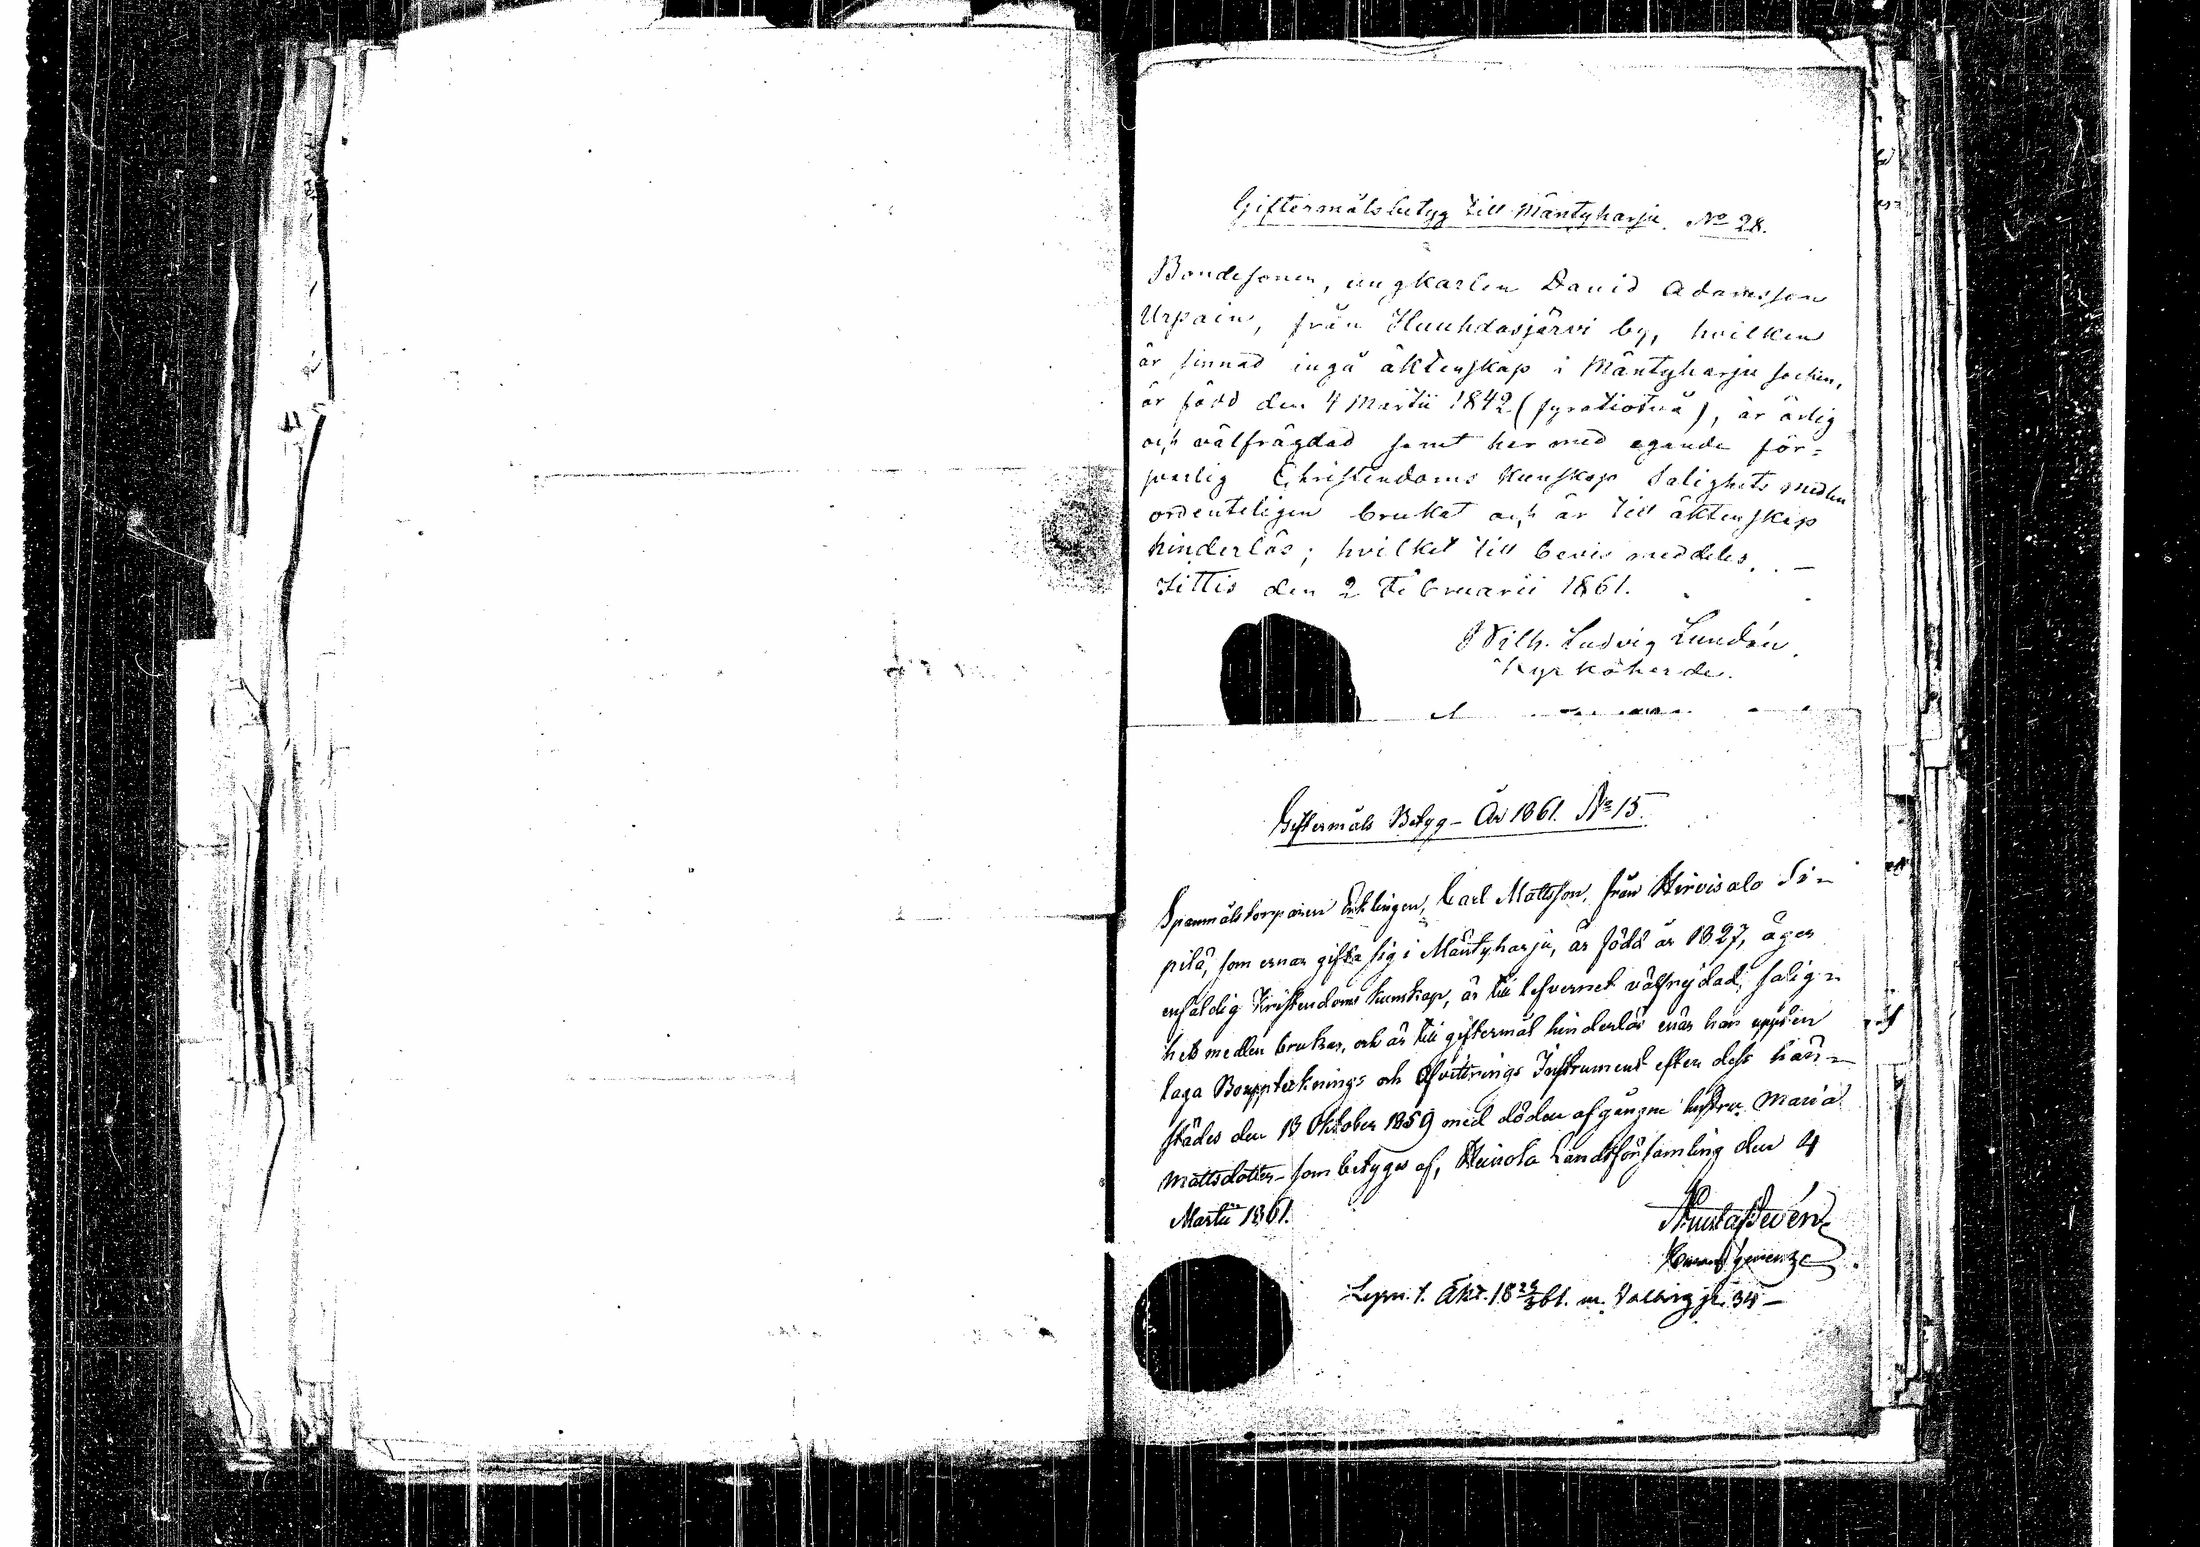 Giftermålsbetyg till Mäntyharju. No 28.
Bondesonen, ungkarlen David Adamsson
Urpain, från Huuhdasjärvi by, hvilken
är sinnad ingå äktenskap i Mäntyharju socken,
är född den 4 Martii 1842 (fyratiotvå), är ärlig
och välfrägdad samt har med egande för-
svarlig Christendoms kunskap Salighets medlen
ordenteligen brukat och är till äktenskap
hinderlös; hvilket till bevis meddeles. –
Jittis den 2 Februarii 1861.
Wilh. Ludvig Lundén.
Kyrkoherde.
Giftermåls Betyg – År 1861. No 15.
Spanmålstorparen Enklingen, Carl Mattsson, från Hirvisalo
som ernar gifta sig i Mäntyharju, är född år 1827, äger
enfaldig Kristendoms kunskap, är till lefvernet välfrejdad, salig-
hets medlen brukar, och är till giftermål hinderlös enär han uppvisr
laga Bouppteknings och Afvittrings Instrument efter dess här-
städes den 18 Oktober 1859 med döden afgångne hustru Maria
Mattsdotter – som betygas af, Heinola Landsförsamling den 4
Martii 1861.
Lysn. t. Äkt. 18 24/3 61. m.